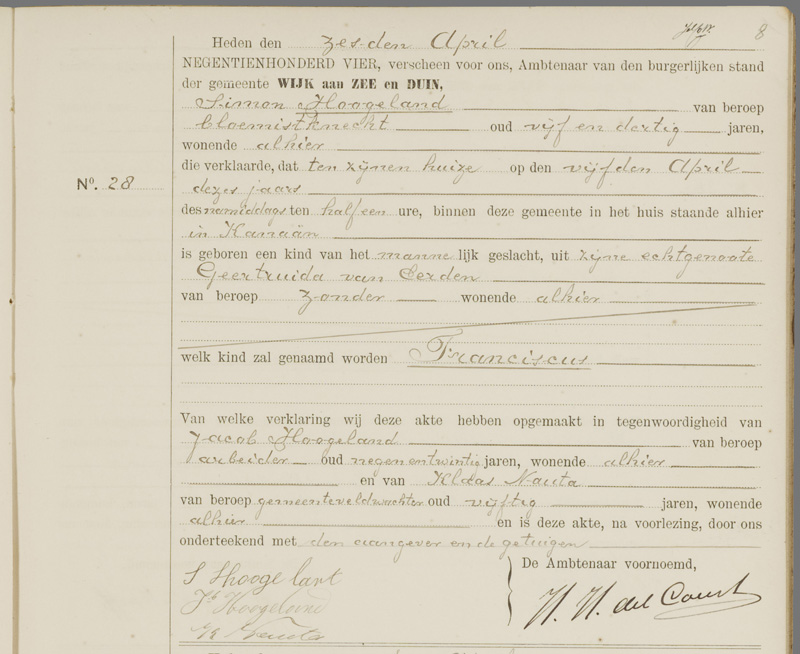 8
Heden den zesden April
NEGENTIENHONDERD VIER, verscheen voor ons, Ambtenaar van den burgerlijken stand
der gemeente WIJK aan ZEE en DUIN,
Simon Hoogeland van beroep
bloemistknecht oud vijf en dertig jaren,
wonende alhier
die verklaarde, dat ten zijnen huize op den vijfden April
No. 28
dezes jaars
des namiddags ten half een ure, binnen deze gemeente in het huis staande alhier
in Kanaän
is geboren een kind van het mannelijk geslacht, uit zijne echtgenoote
Geertruida van Eerden
van beroep zonder wonende alhier
welk kind zal genaamd worden Franciscus
Van welke verklaring wij deze akte hebben opgemaakt in tegenwoordigheid van
Jacob Hoogeland van beroep
arbeider oud negenentwintig jaren, wonende alhier
en van Klaas Nauta
van beroep gemeenteveldwachter oud vijftig jaren, wonende
alhier en is deze akte, na voorlezing, door ons
onderteekend met den aangever en de getuigen
De Ambtenaar voornoemd,
S Hoogelant
Jb Hoogeland
K Nauta